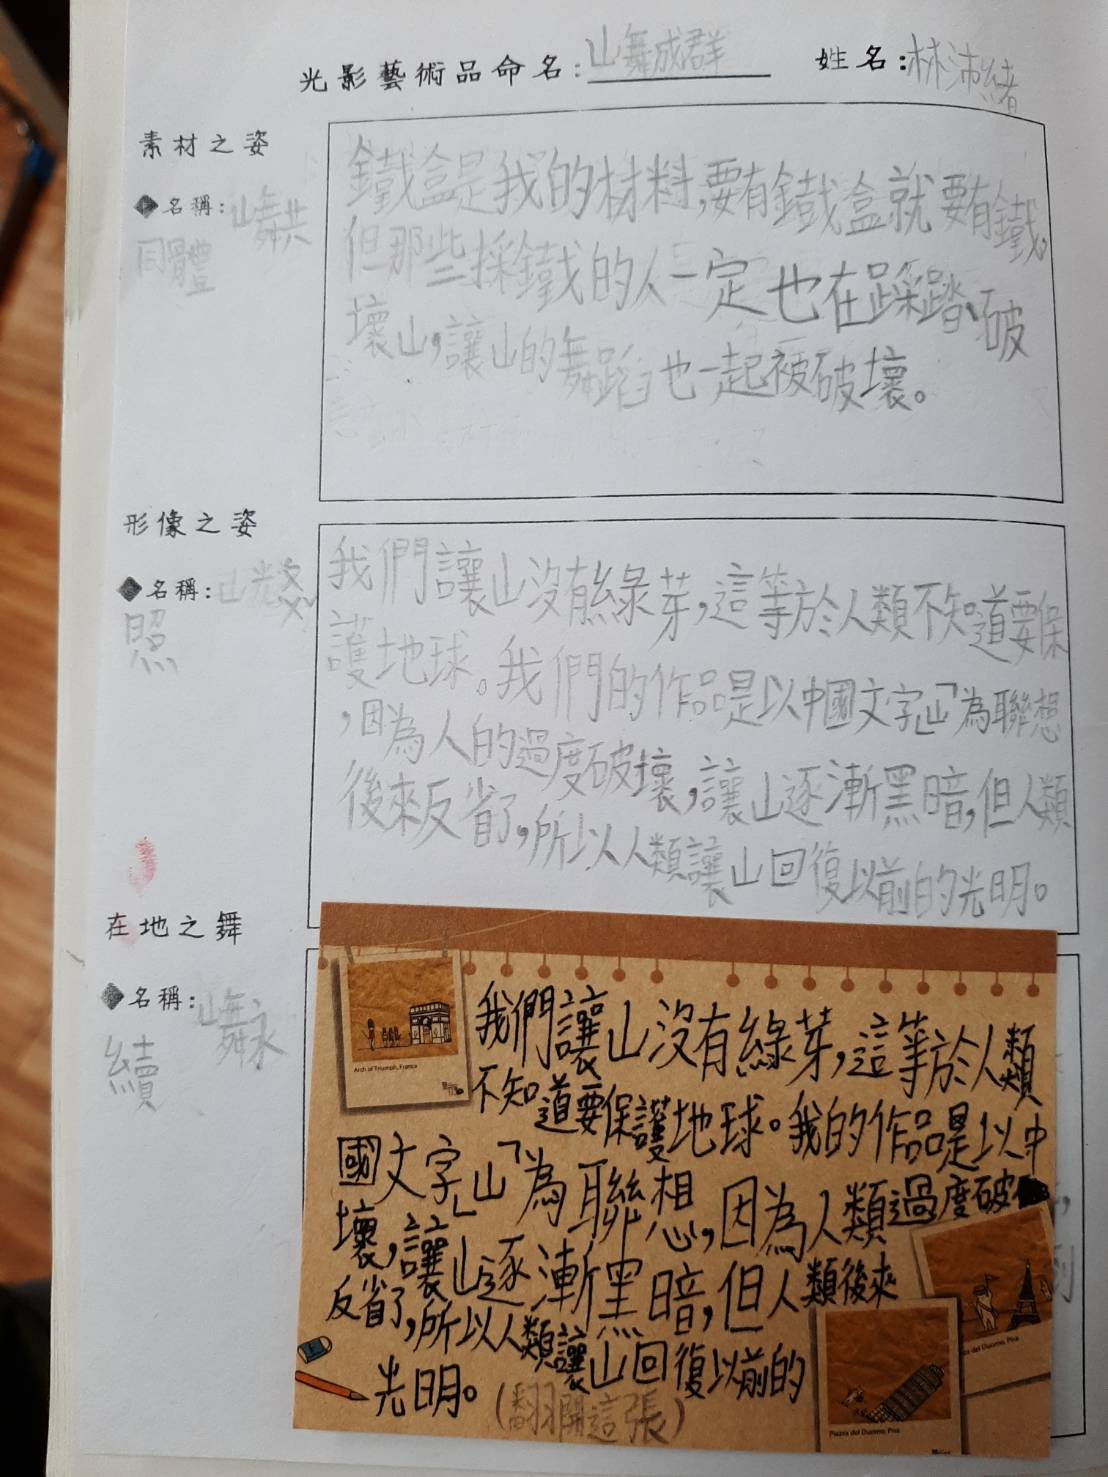 光影藝術品命名：山舞成群 姓名：林沛緒
素材之姿
◆名稱：山舞共
同體
鐵盒是我的材料，要有鐵盒就要有鐵，
但那些採鐵的人一定也在踩踏、破
壞山，讓山的舞蹈也一起被破壞。
形像之姿
◆名稱：山光
照
我們讓山沒有綠芽，這等於人類不知道要保
護地球。我們的作品是以中國文字「山」為聯想
，因為人的過度破壞，讓山逐漸黑暗，但人類
後來反省了，所以人類讓山回復以前的光明。
在地之舞
◆名稱：山舞永
續
Arch of Triumph, France
我們讓山沒有綠芽，這等於人類
不知道要保護地球。我的作品是以中
國文字「山」為聯想，因為人類過度破
壞，讓山逐漸黑暗，但人類後來
反省了，所以人類讓山回復以前的
光明。
(翻開這張)
Piazza del Duomo, Pisa
del Duomo, Pisa